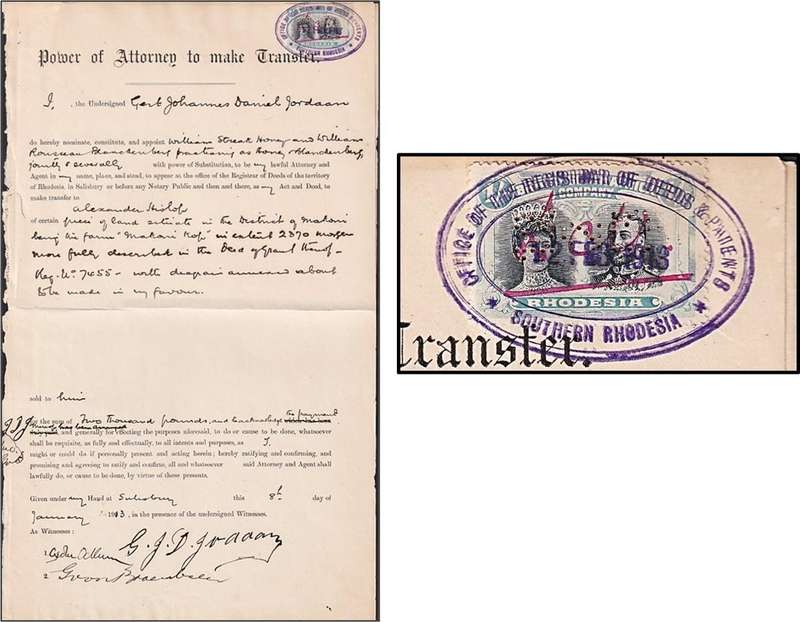 OFFICE OF THE REGISTRAR OF DEEDS & PATENTS
SOUTHERN RHODESIA
Power of Attorney to make Transfer.
I, , the Undersigned Gert Johannes Daniel Jordaan
do hereby nominate, constitute, and appoint William Streak Honey and William
Rousseau Blanckenberg practising as Honey & Blanckenberg,
jointly & severally with power of Substitution, to be my lawful Attorney and
Agent in my name, place, and stead, to appear at the office of the Registrar of Deeds of the territory
of Rhodesia, in Salisbury or before any Notary Public and then and there, as my Act and Deed, to
make transfer to
Alexander Hislop
of certain piece of land situate in the District of Makoni
being the farm "Makoni Kop" in extent 2370 morgen
more fully described in the Deed of Grant thereof
Reg. No 7455 - with diagram annexed about
to be made in my favour.
sold to him
for the sum of Two thousand pounds, and I acknowledge the payment
thereof, and generally for effecting the purposes aforesaid, to do or cause to be done, whatsoever
shall be requisite, as fully and effectually, to all intents and purposes, as I
might or could do if personally present and acting herein; hereby ratifying and confirming, and
promising and agreeing to ratify and confirm, all and whatsoever said Attorney and Agent shall
lawfully do, or cause to be done, by virtue of these presents.
Given under my Hand at Salisbury this 8th day of
January 1913, in the presence of the undersigned Witnesses.
As Witnesses :
1
G. J. D. Jordaan
2
G.J.D.J.
OFFICE OF THE REGISTRAR OF DEEDS & PATENTS
COMPANY
1913
RHODESIA
SOUTHERN RHODESIA
Transfer.